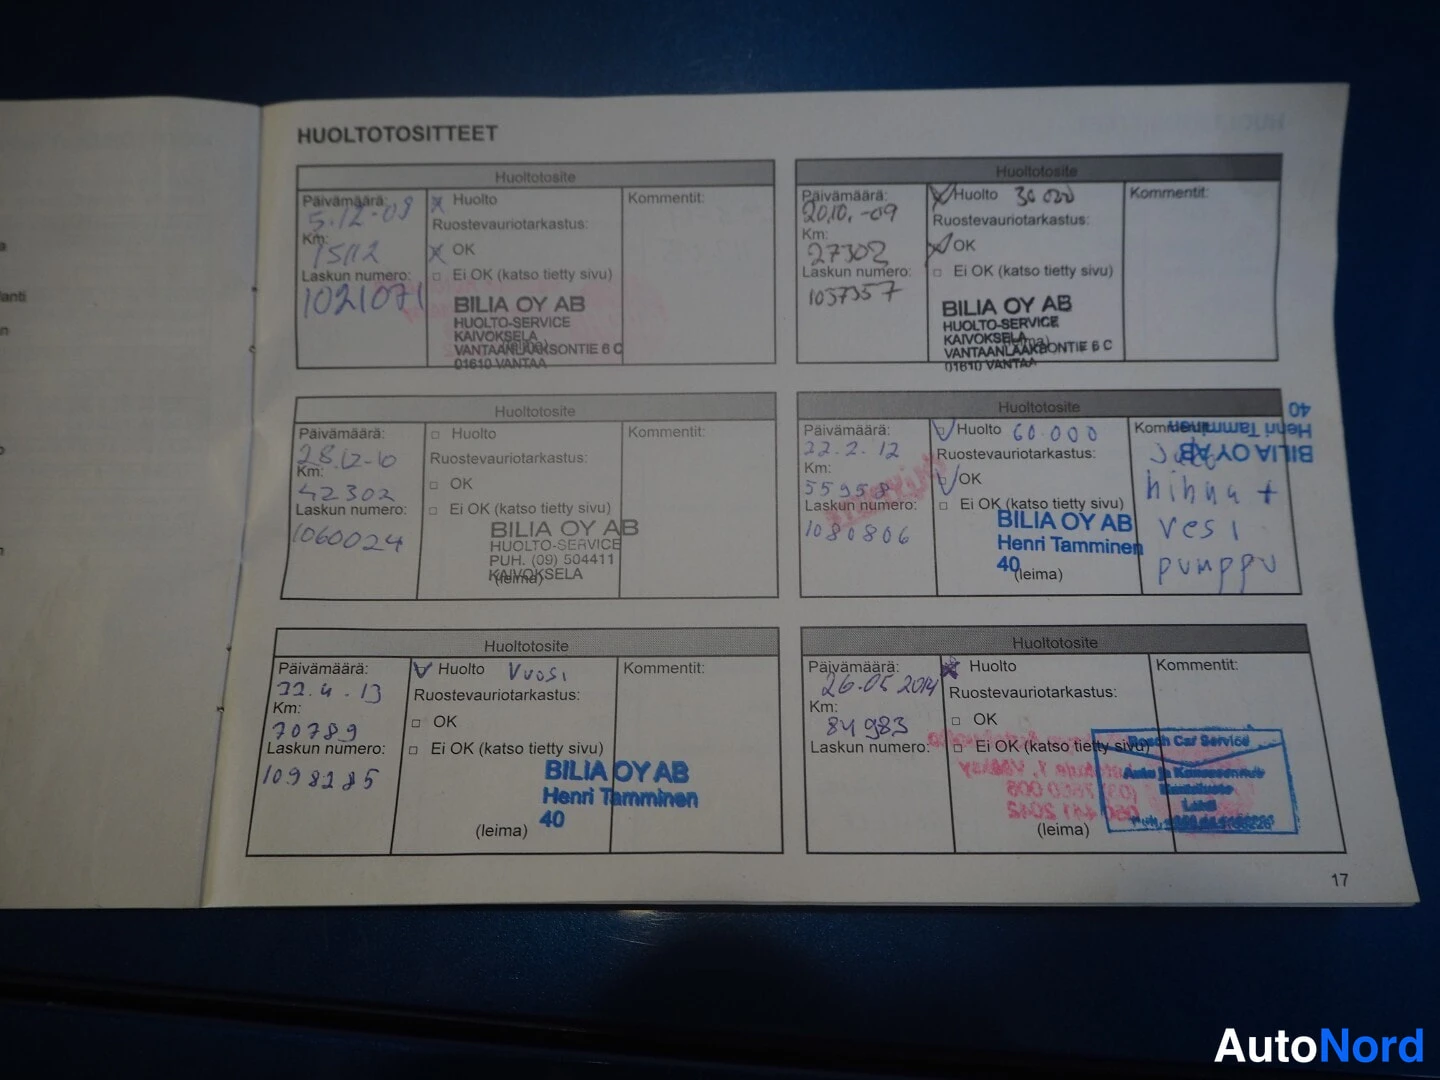 HUOLTOTOSITTEET
Huoltotosite
Päivämäärä:
5.12-08
Km:
15112
Laskun numero:
1021071
x Huolto
Ruostevauriotarkastus:
x OK
□ Ei OK (katso tietty sivu)
BILIA OY AB
HUOLTO-SERVICE
KAIVOKSELA
VANTAANLAAKSONTIE 6 C
01610 VANTAA
Kommentit:
Huoltotosite
Päivämäärä:
20,10,-09
Km:
27302
Laskun numero:
1037357
x Huolto 30 000
Ruostevauriotarkastus:
x OK
□ Ei OK (katso tietty sivu)
BILIA OY AB
HUOLTO-SERVICE
KAIVOKSELA
VANTAANLAAKSONTIE 6 C
01610 VANTAA
Kommentit:
Huoltotosite
Päivämäärä:
28.12-10
Km:
42302
Laskun numero:
1060024
□ Huolto
Ruostevauriotarkastus:
□ OK
□ Ei OK (katso tietty sivu)
BILIA OY AB
HUOLTO-SERVICE
PUH. (09) 504411
KAIVOKSELA
(leima)
Kommentit:
Huoltotosite
Päivämäärä:
22.2.12
Km:
55958
Laskun numero:
1080806
V Huolto 60.000
Ruostevauriotarkastus:
V OK
□ Ei OK (katso tietty sivu)
BILIA OY AB
Henri Tamminen
40
(leima)
Kommentit:
hihna +
vesi
pumppu
BILIA OY AB
Henri Tamminen
40
Huoltotosite
Päivämäärä:
22.4.13
Km:
70789
Laskun numero:
1098285
V Huolto Vuosi
Ruostevauriotarkastus:
□ OK
□ Ei OK (katso tietty sivu)
BILIA OY AB
Henri Tamminen
40
(leima)
Kommentit:
Huoltotosite
Päivämäärä:
26.05 2014
Km:
84983
Laskun numero:
x Huolto
Ruostevauriotarkastus:
□ OK
□ Ei OK (katso tietty sivu)
(leima)
Kommentit:
Bosch Car Service
17
AutoNord